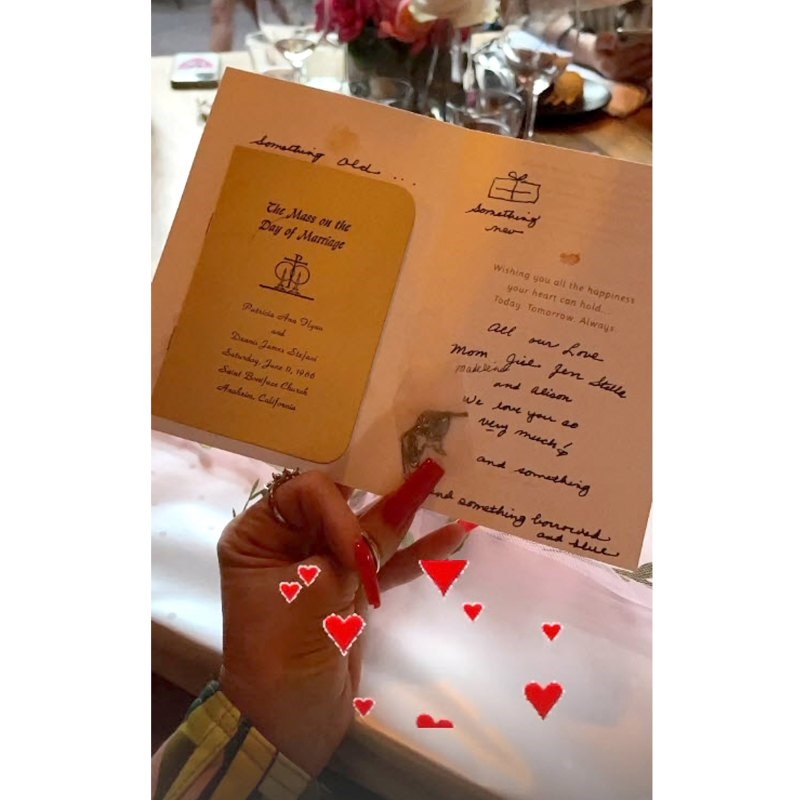 Something old ...
The Mass on the
Day of Marriage
Patricia Ann Flynn
and
Dennis James Stefani
Saturday, June 9, 1966
Saint Boniface Church
Anaheim, California
Something
new
Wishing you all the happiness
your heart can hold...
Today. Tomorrow. Always.
All our Love
Mom Jill Jen
Madeleine
and Alison
We love you so
very much!
and something
and something borrowed
and blue